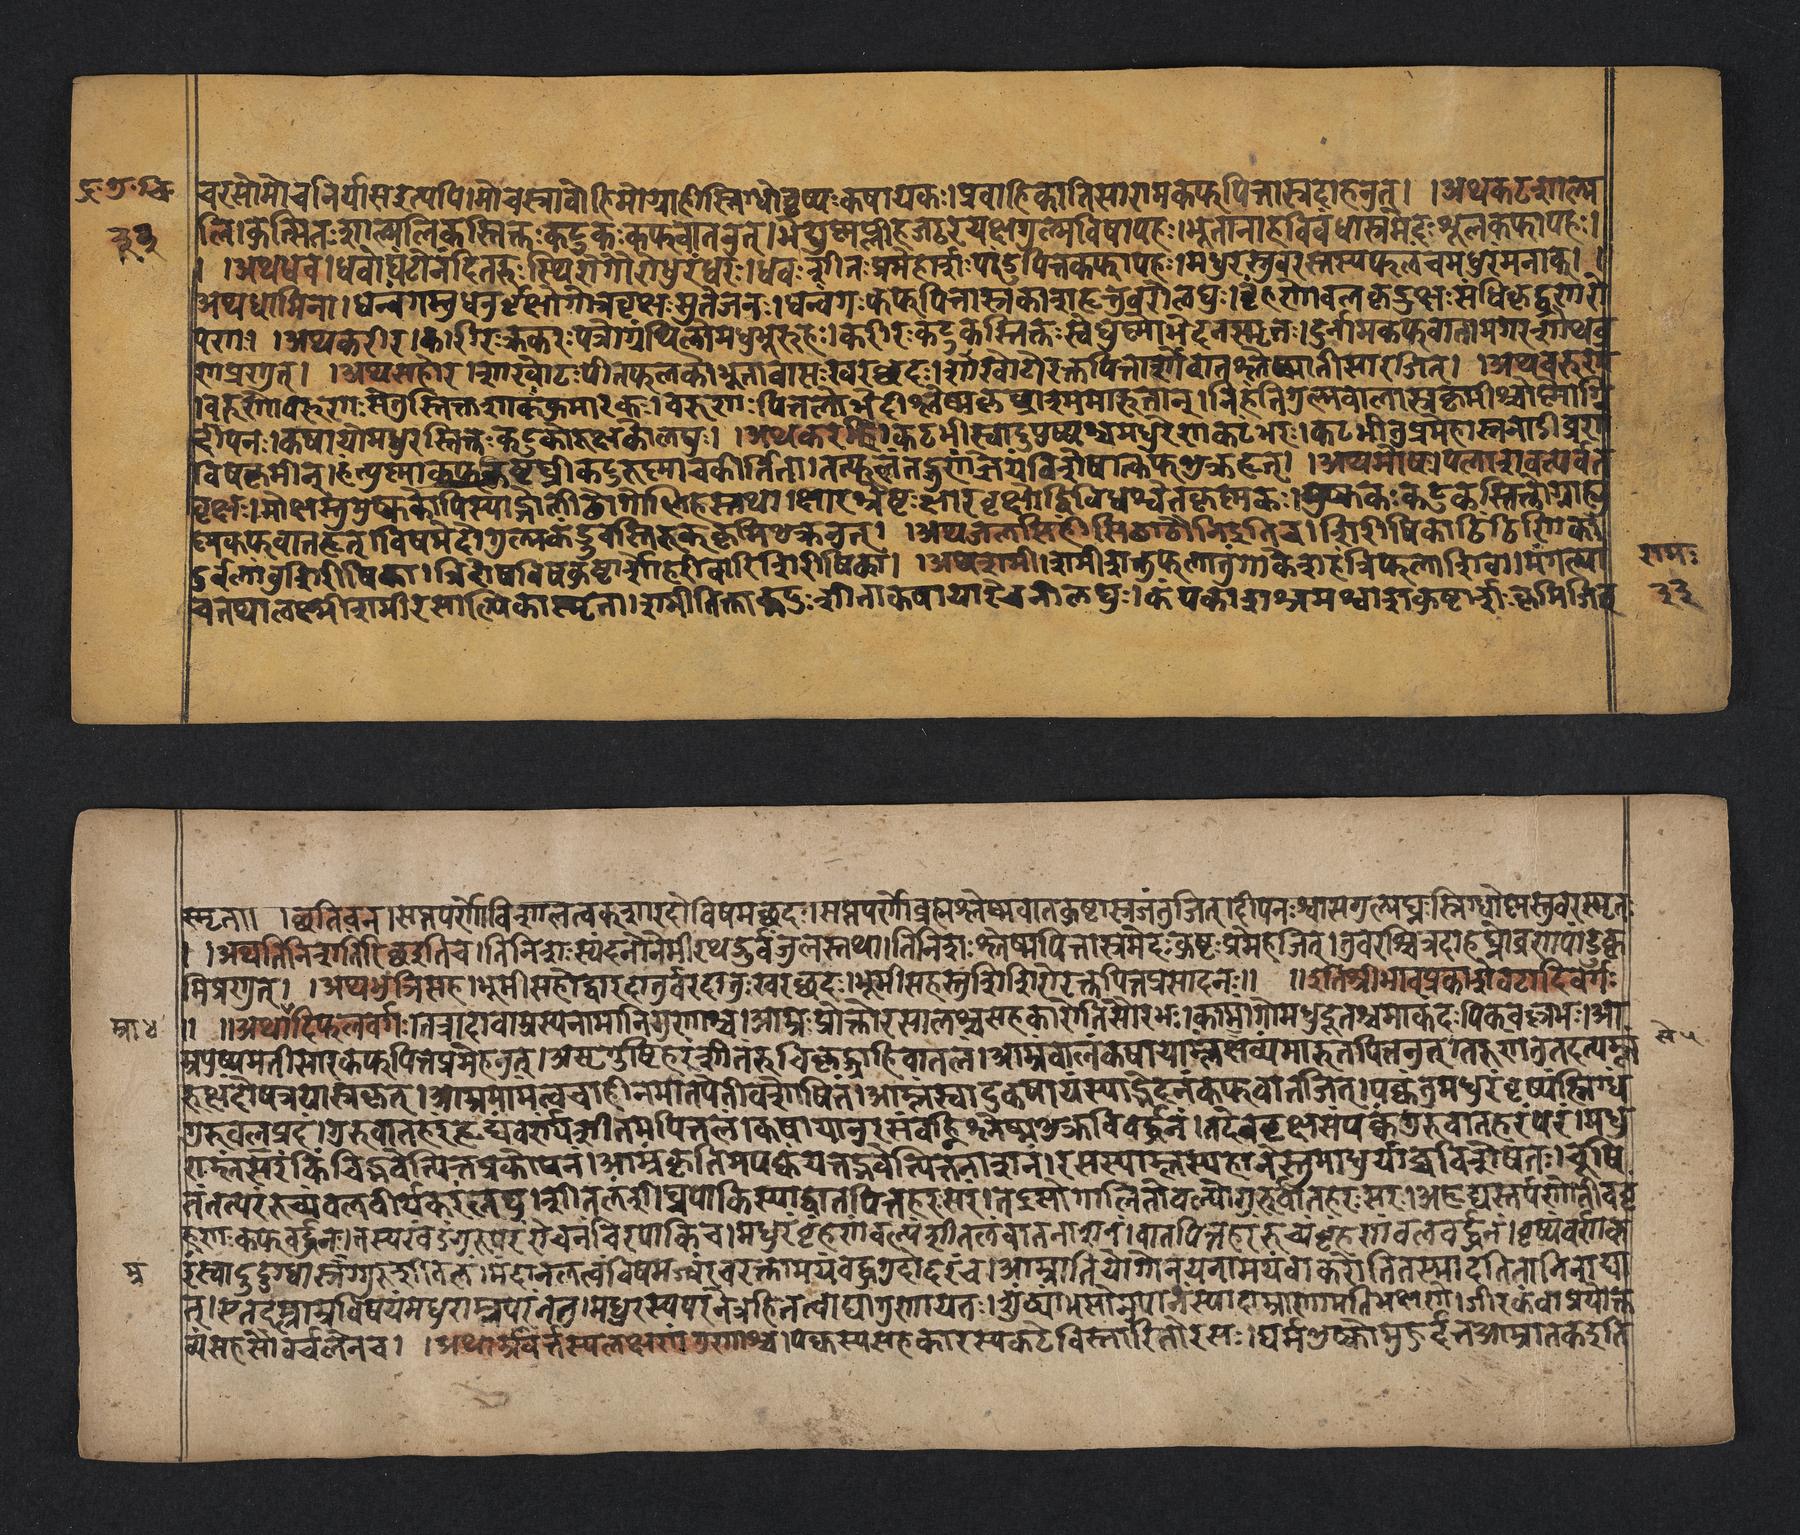 चरसोमोचनिर्यासइत्यपि।मोचस्त्रावोहिमोग्राहीस्निग्धोवृष्यःकषायकः।प्रवाहिकातिसारामकफपित्तास्रदाहनुत्। ।अथकटशाल्म
लि।कुत्सितःशाल्मलिकस्तिक्तःकटुकःकफवातनुत्।भेद्युष्णप्लीहजठरयकृद्गुल्मविषापहः।भूतानाहविबंधास्रमेदःशूलकफापहः।
। ।अथधवे।धवोघटोनंदितरुःस्थिरोगौरोधुरंधरः।धवःशीतःप्रमेहार्शःपांडुपित्तकफापहः।मधुरस्तुवरस्तस्यफलंचमधुरंमनाक्। ।
अथधामिनी।धन्वंगस्तुधनुर्वृक्षोगोत्रवृक्षःसुतेजनः।धन्वंगःकफपित्तास्रकाशहृत्तुवरोलघुः।बृंहणोबलकृद्रुक्षःसंधिकृद्व्रणरो
पणः। ।अथकरीर।करीरःक्रकरःपत्रोग्रंथिलोमरुभूरुहः।करीरःकटुकस्तिक्तःस्वेद्युष्णोभेदनस्मृतः।दुर्नामकफवातामगरशोथव्र
णप्रणुत्। ।अथसहोर।शाखोटःपीतफलकोभूतावासःखरच्छदः।शाखोटोरक्तपित्तार्शोवातश्लेष्मातीसारजित्। ।अथवरुण
।वरुणोवरणःसेतुस्तिक्तशाकःकुमारकः।वरुणःपित्तलोभेदीश्लेष्मकृच्छ्राश्ममारुतान्।निहंतिगुल्मवातास्रकृमींश्चोष्णोग्नि
दीपनः।कषायोमधुरस्तिक्तःकटुकोरुक्षकोलघुः। ।अथकरभी।कटभीस्वादुपुष्पश्चमधुरेणःकटंभरः।कटभीतुप्रमेहार्शोनाडीव्रण
विषकृमीन्।हंत्युष्णाकफकुष्ठघ्नीकटूरुक्षाचकीर्तिता।तत्फलंतद्गुणंज्ञेयंविशेषात्कफशुक्रहृत्। ।अथमोषा।पलाशवत्पर्वत
वृक्षः।मोक्षस्तुमुष्ककोपिस्याद्गोलीढोगोलिहस्तथा।क्षारश्रेष्ठःक्षारवृक्षोद्विविधश्वेतकृष्णकः।मुष्ककःकटुकस्तिक्तोग्राह्यु
ष्णःकफवातहृत्।विषमेदोगुल्मकंडुवस्तिरुक्कृमिशुक्रनुत्। ।अथजलसिरीसिढाढोनिइतिच।शिरीषिकाटिंटिणिका
दुर्बलांबुशिरीषिका।त्रिदोषविषकुष्ठार्शोहरीवारिशिरीषिका। ।अथशमी।शमीशक्तुफलातुंगाकेशहंत्रिफलाशिवा।मंगल्या
चतथालक्ष्मीशमीरसाल्पिकास्मृता।शमीतिक्ताकटुःशीताकषायारेचनीलघुः।कंपकाशभ्रमश्वाशकुष्ठार्शःकृमिजित्
रामः
३३
स्मृता॥ ।छातिवन।सप्तपर्णोविशालत्वक्शारदोविषमच्छदः।सप्तपर्णोव्रणश्लेष्मवातकुष्ठास्रजंतुजित्।दीपनःश्वासगुल्मघ्नःस्निग्धोष्णस्तुवरस्मृतः
। ।अथतिनिशातिरिच्छइतिच।तिनिशःस्यंदनोनेमीरथद्रुर्वंजुलस्तथा।तिनिशःश्लेष्मपित्तास्रमेदःकुष्ठःप्रमेहजित्।तुवरश्चित्रदाहघ्नोव्रणपांडुकृ
मिप्रणुत्। ।अथभुंजिसह।भूमीसहोद्वारदातुर्वरदातुःखरच्छदः।भूमीसहस्तुशिशिरोरक्तपित्तप्रसादनः॥ ॥इतिश्रीभावप्रकाशेवटादिवर्गः
॥ ॥अथाम्रादिफलवर्गः।तत्रादावाम्रस्यनामानिगुणाश्च।आम्रःप्रोक्तोरसालश्चसहकारोतिसौरभः।कामांगोमधुदूतश्चमाकंदःपिकवल्लभः।आ
म्रपुष्पमतीसारकफपित्तप्रमेहनुत्।असृग्दुष्टिहरंशीतंरुचिकृद्ग्राहिवातलं।आम्रंबालंकषायाम्लंरुच्यंमारुतपित्तनुत्।तरुणंतुतदत्यम्लं
रुक्षंदोषत्रयास्रकृत्।आम्रमामंत्वचाहीनमातपेतीवशोषितं।आम्लंस्वादुकषायंस्याद्भेदनंकफवातजित्।पक्वंतुमधुरंवृष्यंस्निग्धं
गुरुबलप्रदं।गुरुवातहरंहृद्यंवर्ण्यंशीतमपित्तलं।कषायानुरसंवह्निश्लेष्मशुक्रविवर्द्धनं।तदेववृक्षसंपक्वंगुरुवातहरंपरं।मधु
राम्लंसरंकिंचिद्भवेत्पित्तप्रकोपनं।आम्रंकृतिमपक्वंचयत्तद्भवेत्पित्तनाशनं।रसस्याम्लस्यहानेस्तुमाधुर्याच्चविशेषतः।चूषि
तंतत्परंरुच्यंबलवीर्यकरंलघु।शीतलंशीघ्रपाकिस्याद्वातपित्तहरंसरं।तद्रसोगालितोबल्योगुरुर्वातहरःसरः।अहृद्यस्तर्पणोतीवबृं
हणःकफवर्द्धनः।तस्यखंडंगुरुपरंरोचनंचिरपाकिच।मधुरंबृंहणंबल्यंशीतलंवातनाशनं।वातपित्तहरंरुच्यंबृंहणंबलवर्द्धनं।वृष्यंवर्णक
रंस्वादुदुग्धाम्रंगुरुशीतलं।मंदानलत्वंविषमज्वरंचरक्तामयंबद्धगुदोदरंच।आम्रातियोगोनयनामयंवाकरोतितस्मादतितानिनाद्या
त्।एतदम्लाम्रविषयंमधुराम्रपरंनतु।मधुरस्यपरंनेत्रहितत्वाद्यागुणायतः।शुंठ्यांभसोनुपानंस्यादाम्राणामतिभक्षणे।जीरकंवाप्रयोक्त
व्यंसहसौवर्चलेनच। ।अथाम्रावर्त्तस्यलक्षणंगुणाश्च।पक्वस्यसहकारस्यकटेविस्तारितोरसः।घर्मशुष्कोमुहुर्दत्तआम्रातकइति